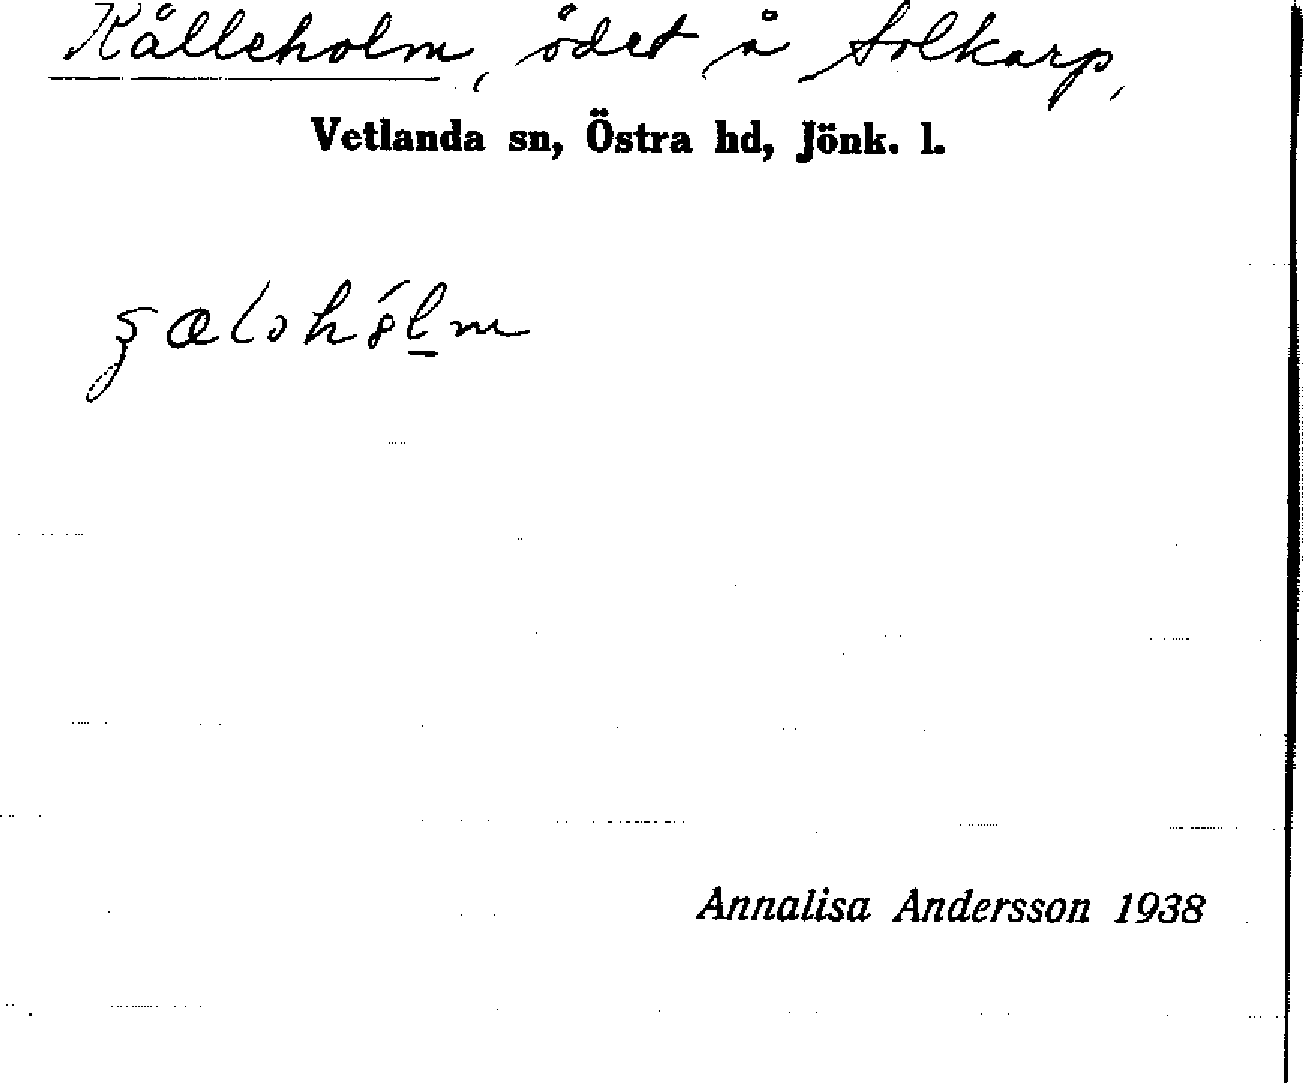 Källeholm, ödet å Solkarp,
Vetlanda sn, Östra hd, Jönk. l.
Annalisa Andersson 1938